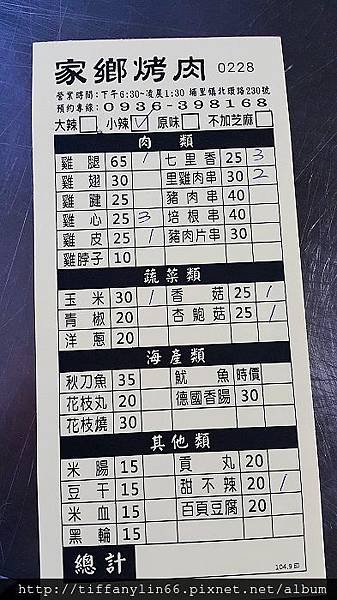 家鄉烤肉 0228
營業時間:下午6:30~凌晨1:30 埔里鎮北環路230號
預約專線:0936-398168
大辣 小辣 ✓ 原味 不加芝麻
肉類
雞腿 65 / 七里香 25 3
雞翅 30 里雞肉串 30 2
雞腱 25 豬肉串 40
雞心 25 3 培根串 40
雞皮 25 / 豬肉片串 30
雞脖子 10
蔬菜類
玉米 30 / 香菇 25 /
青椒 20 杏鮑菇 25 /
洋蔥 20
海產類
秋刀魚 35 魷魚 時價
花枝丸 20 德國香腸 30
花枝燒 30
其他類
米腸 15 貢丸 20
豆干 15 甜不辣 20 /
米血 15 百頁豆腐 20
黑輪 15
總計
104.9印
http://tiffanylin66.pixnet.net/album